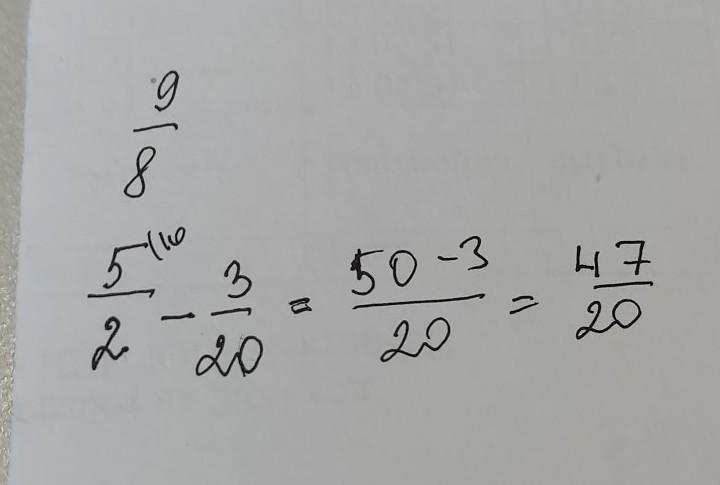 9/8
5/2 (10 - 3/20 = 50-3/20 = 47/20